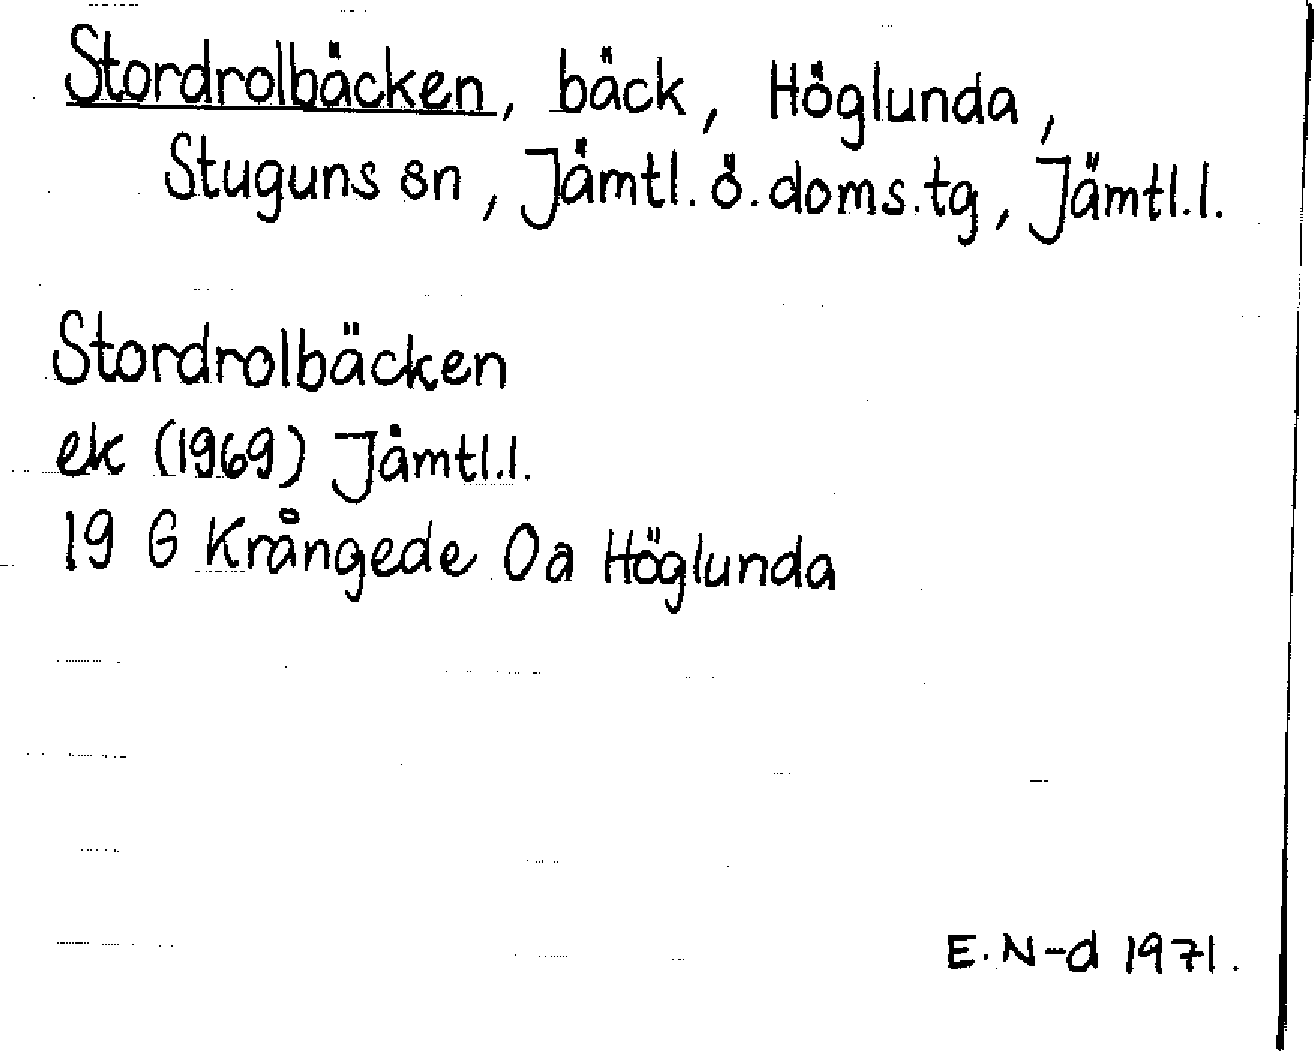 Stordrolbäcken, bäck, Höglunda,
Stuguns sn, Jämtl. ö. doms.tg, Jämtl.l.
Stordrolbäcken
ek (1969) Jämtl.l.
19 G Krångede 0a Höglunda
E. N-d 1971.